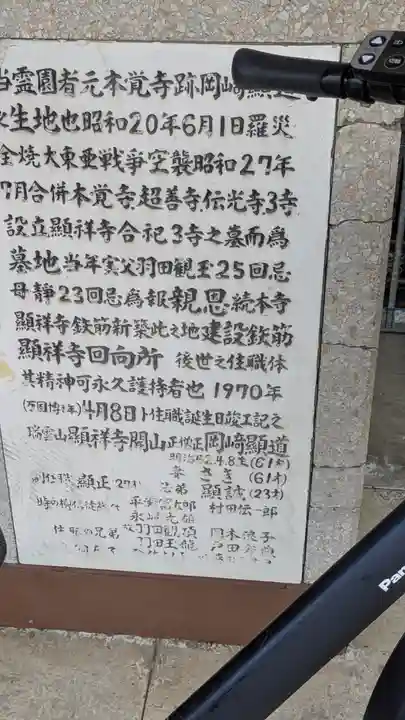 当霊園者元本覚寺跡岡﨑顯道
生地也昭和20年6月1日羅災
全焼大東亜戦争空襲昭和27年
7月合併本覚寺.超善寺.伝光寺.3寺
設立顯祥寺合祀3寺之墓而爲
墓地当年実父羽田観玉25回忌
母靜23回忌爲報親恩続本寺
顯祥寺鉄筋新築此之地建設鉄筋
顯祥寺回向所 後世之住職体
其精神可永久護持者也 1970年
(万国博年)4月8日ト住職誕生日竣工記之
瑞雲山顯祥寺開山正僧正岡﨑顯道
明治 4.8生(61才)
妻 さき (61才)
顯正(27才) 兄弟 顯誠(23才)
時の 平 村田伝一郎
永
住職の兄弟 羽田観 岡本
羽田玉龍 戸田
Pan